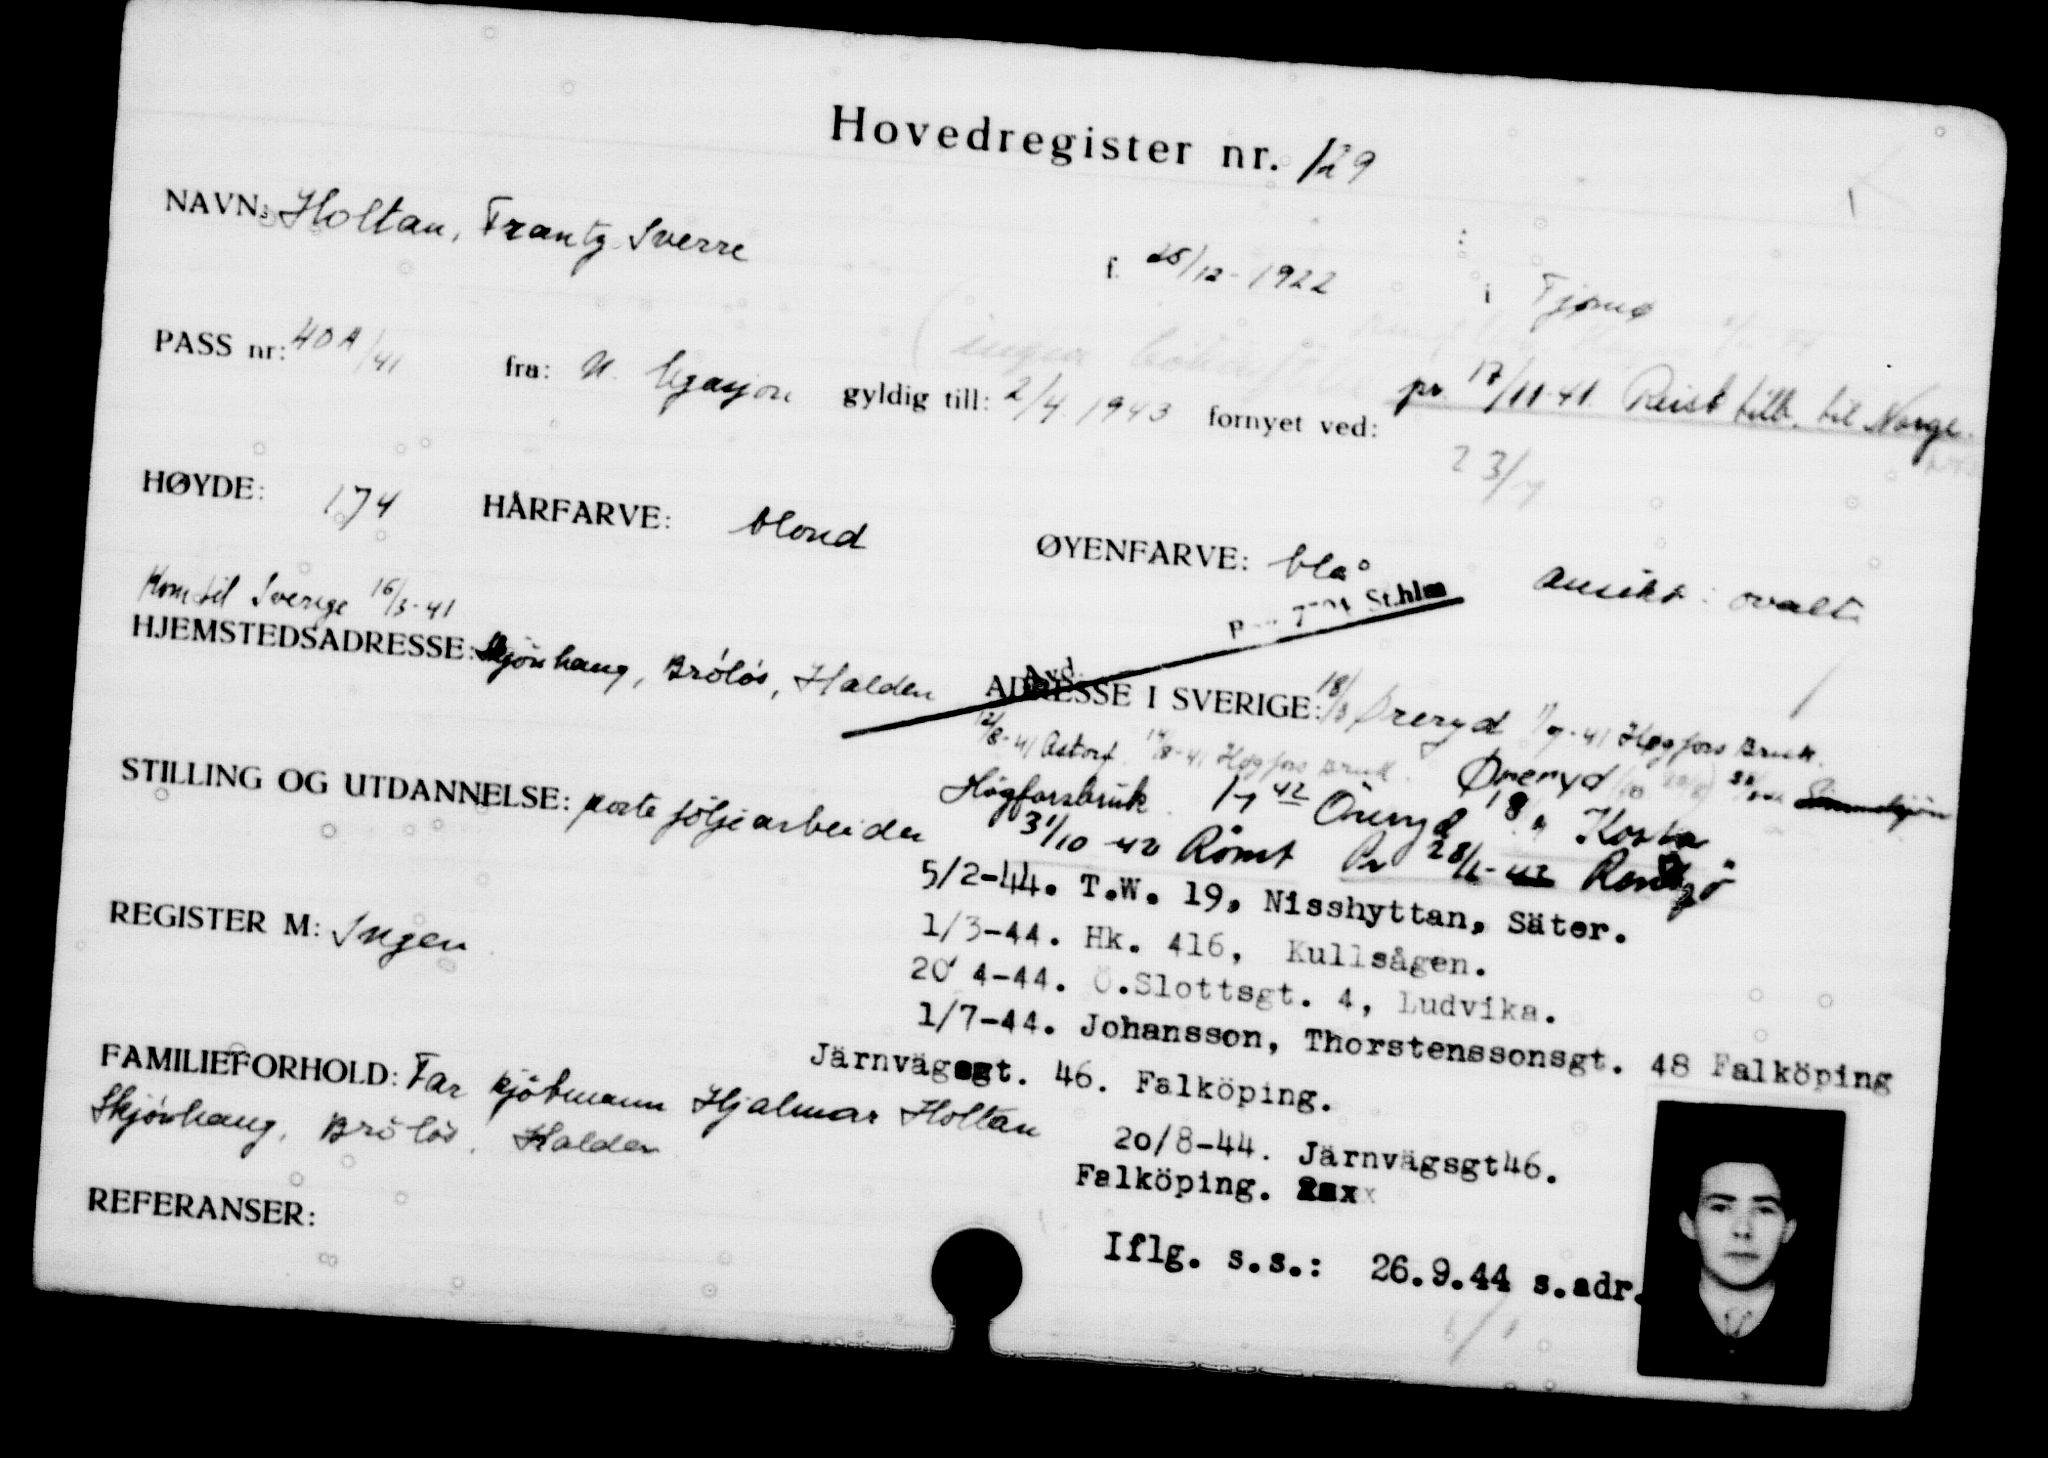 Hovedregister nr. 129
NAVN: Holtan, Frantz Sverre
f. 25/12-1922 i Tjømø
PASS nr: 40A/41 fra: N. legasjon gyldig till: 2/4.1943 fornyet ved:
pr. 17/11-41 Reist tilb. til Norge.
23/7
HØYDE: 174 HÅRFARVE: blond ØYENFARVE: blå ansikt: ovalt
Kom til Sverige 16/3-41
St.hlm
HJEMSTEDSADRESSE: Skjönhaug, Bröløs, Halden
Avd.
ADRESSE I SVERIGE: 18/3 Øreryd 1/7-41 Høgfors Bruk.
12/8-41 Astorp 14/8-41 Høgfors Bruk. Øreryd
STILLING OG UTDANNELSE: parteföljearbeider
Högforsbruk. 1/7 42 Öreryd 18/9 Kosta
31/10-42 Römt Pr 28/1-43
5/2-44. T.W. 19, Nisshyttan, Säter.
REGISTER M: Ingen
1/3-44. Hk. 416, Kullsågen.
20 4-44. Ö.Slottsgt. 4, Ludvika.
1/7-44. Johansson, Thorstenssonsgt. 48 Falköping
Järnvägsgt. 46. Falköping.
FAMILIEFORHOLD: Far kjöbmann Hjalmar Holtan
Skjönhaug, Bröløs, Halden
20/8-44. Järnvägsgt46.
Falköping.
REFERANSER:
Iflg. s.s.: 26.9.44 s.adr.